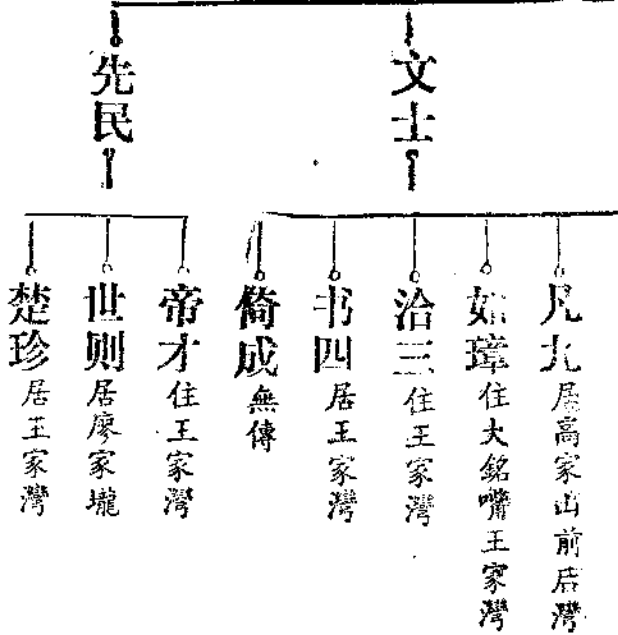 文士
先民
凡九 居高家山前后灣
如璋 住大銘嘴王家灣
洽三 住王家灣
书四 居王家灣
倚成 無傳
帝才 住王家灣
世则 居廖家壠
楚珍 居王家灣